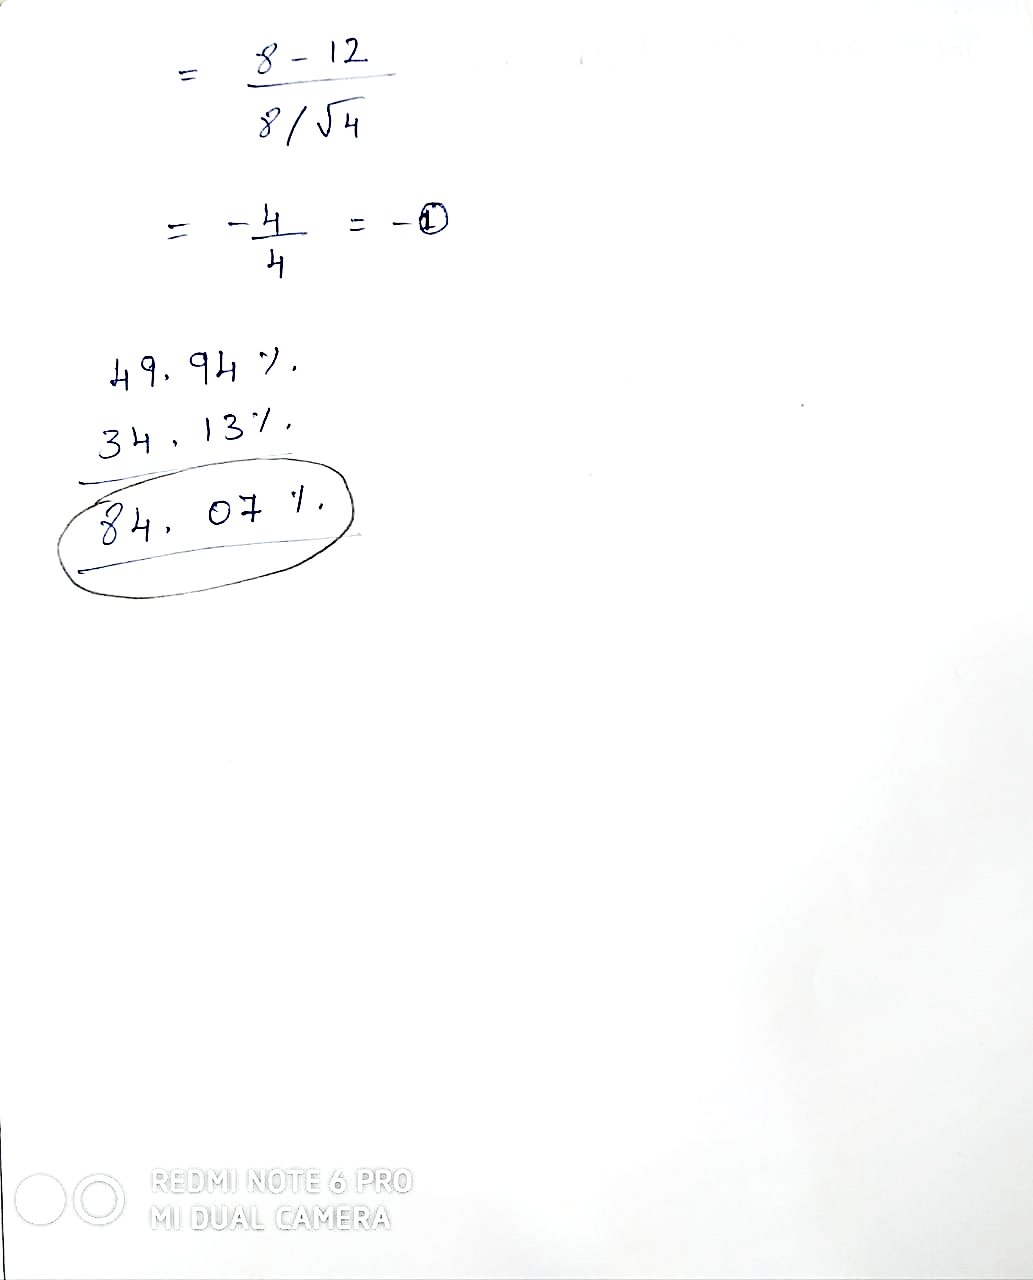 = 8 - 12
8/√4
= -4 = -1
4
49.94%.
34.13%.
84.07%.
REDMI NOTE 6 PRO
MI DUAL CAMERA